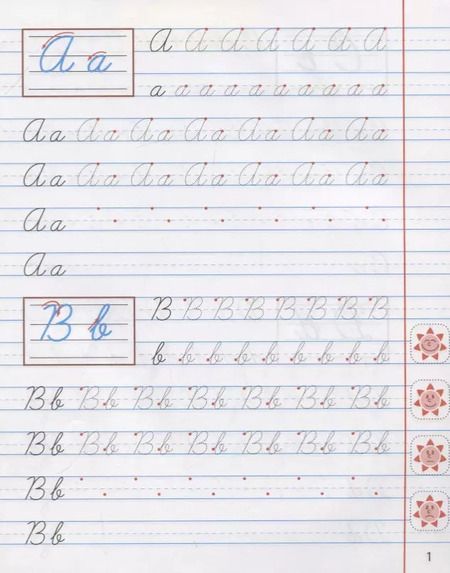 A a
A A A A A A A
a a a a a a a a a a
Aa Aa Aa Aa Aa Aa Aa
Aa Aa Aa Aa Aa Aa Aa
Aa
Aa
B b
B B B B B B B B
b b b b b b b b b
Bb Bb Bb Bb Bb Bb Bb
Bb Bb Bb Bb Bb Bb Bb
Bb
Bb
1